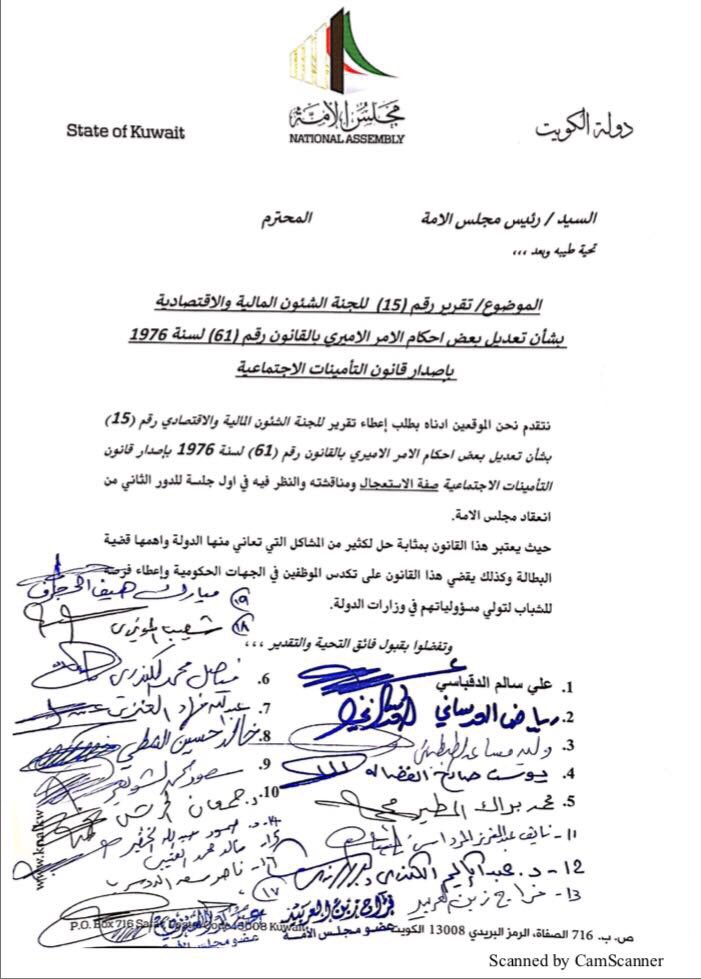 State of Kuwait
مجلس الأمة
NATIONAL ASSEMBLY
دولة الكويت
السيد / رئيس مجلس الامة المحترم
تحية طيبه وبعد ،،،
الموضوع/ تقرير رقم (15) للجنة الشئون المالية والاقتصادية
بشأن تعديل بعض احكام الامر الاميري بالقانون رقم (61) لسنة 1976
بإصدار قانون التأمينات الاجتماعية
نتقدم نحن الموقعين ادناه بطلب إعطاء تقرير للجنة الشئون المالية والاقتصادي رقم (15)
بشأن تعديل بعض احكام الامر الاميري بالقانون رقم (61) لسنة 1976 بإصدار قانون
التأمينات الاجتماعية صفة الاستعجال ومناقشته والنظر فيه في اول جلسة للدور الثاني من
انعقاد مجلس الامة.
حيث يعتبر هذا القانون بمثابة حل لكثير من المشاكل التي تعاني منها الدولة واهمها قضية
البطالة وكذلك يقضي هذا القانون على تكدس الموظفين في الجهات الحكومية وإعطاء فرصة
للشباب لتولي مسؤولياتهم في وزارات الدولة.
وتفضلوا بقبول فائق التحية والتقدير ،،،
١٩ مبارك هيف الحجرف
١٨ شعيب المويزري
1. علي سالم الدقباسي
2. رياض العدساني
3. وليد مساعد الطبطبائي
4. يوسف صالح الفضاله
5. محمد براك المطير
6. فيصل محمد الكندري
7. عبدالله فهاد العنزي
8. خالد حسين الشطي
9. سعود محمد الشويعر
10. د. جمعان الحربش
11- نايف عبدالعزيز المرداس
12- د. عبدالكريم الكندري
13- فراج زبن العربيد
١٤- د. حمود عبدالله الخضير
١٥- خالد محمد العتيبي
١٦- ناصر سعد الدوسري
١٧
فراج زبن العربيد
عضو مجلس الأمة
عضو مجلس الأمة
www.kna.kw
P.O. Box 716 Safat, Postal Code 13008 Kuwait
ص. ب. 716 الصفاة، الرمز البريدي 13008 الكويت
Scanned by CamScanner